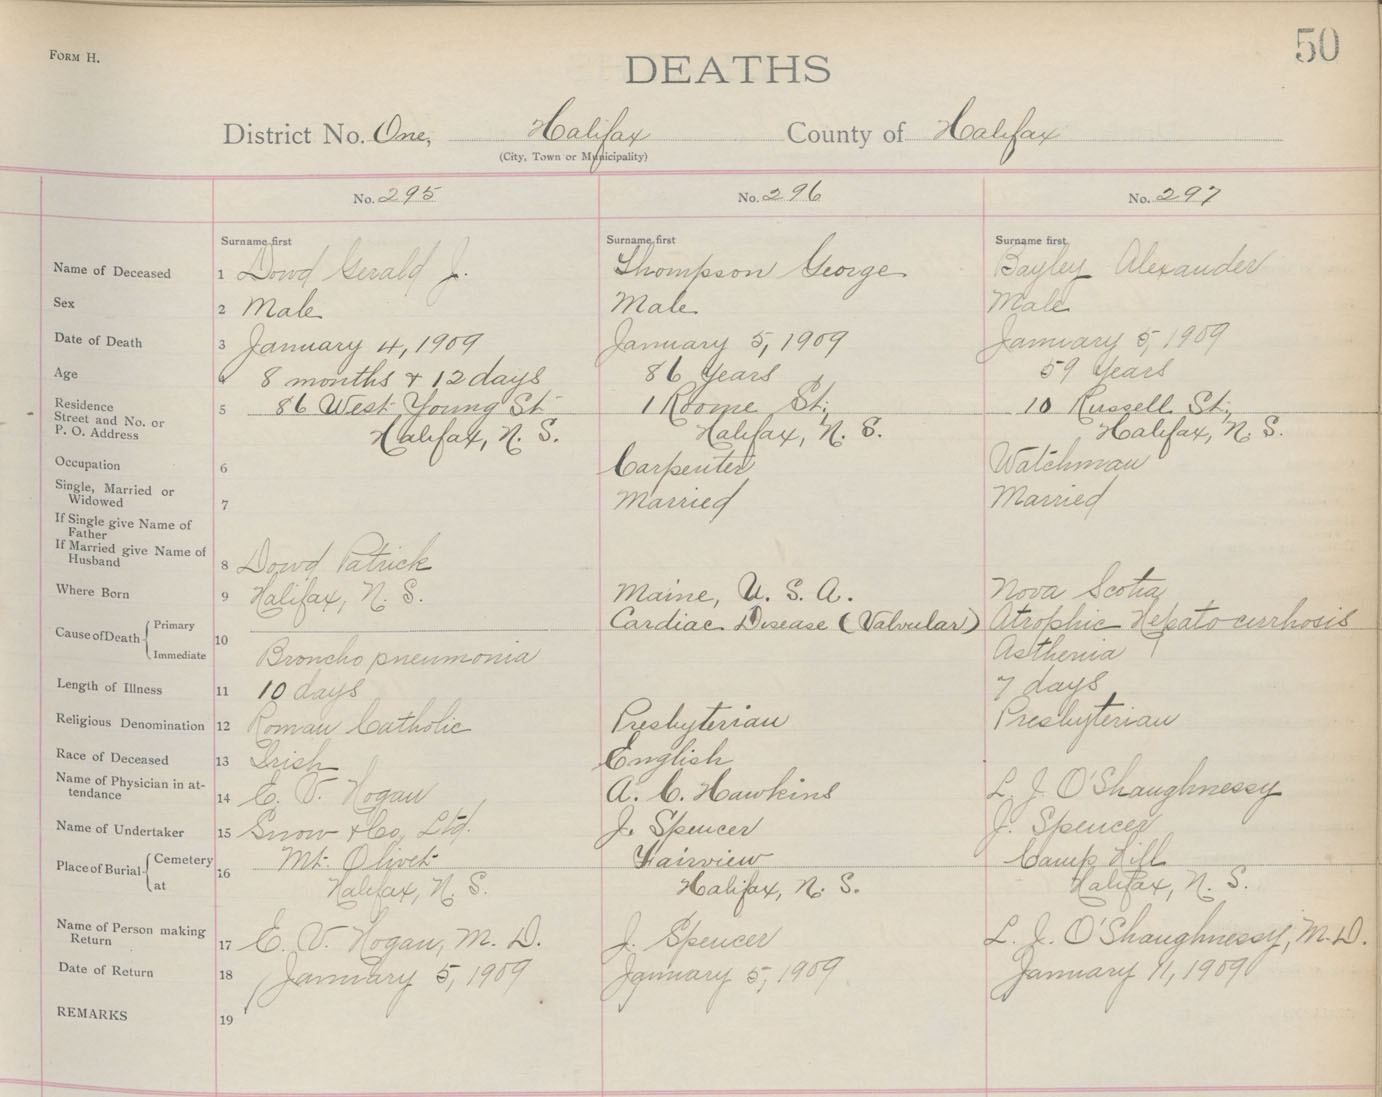 50
Form H.
DEATHS
District No. One, Halifax County of Halifax
(City, Town or Municipality)
No. 295 No. 296 No. 297
Surname first Surname first Surname first
Name of Deceased 1 Dowd Gerald J. Thompson George Bayley Alexander
Sex 2 Male Male Male
Date of Death 3 January 4, 1909 January 5, 1909 January 5, 1909
Age 4 8 months & 12 days 86 Years 59 Years
Residence
Street and No. or 5 86 West Young St 1 Roome St; 10 Russell St;
P. O. Address Halifax, N. S. Halifax, N. S. Halifax, N. S.
Occupation 6 Carpenter Watchman
Single, Married or
Widowed 7 Married Married
If Single give Name of
Father
If Married give Name of
Husband 8 Dowd Patrick
Where Born 9 Halifax, N. S. Maine, U. S. A. Nova Scotia
Cause of Death Primary 10 Cardiac Disease (Valvular) Atrophic Hepato cirrhosis
Immediate Broncho pneumonia Asthenia
Length of Illness 11 10 days 7 days
Religious Denomination 12 Roman Catholic Presbyterian Presbyterian
Race of Deceased 13 Irish English
Name of Physician in at-
tendance 14 E. V. Hogan A. C. Hawkins L. J. O'Shaughnessy
Name of Undertaker 15 Snow & Co, Ltd. J. Spencer J. Spencer
Place of Burial Cemetery 16 Mt. Olivet Fairview Camp Hill
at Halifax, N. S. Halifax, N. S. Halifax, N. S.
Name of Person making
Return 17 E. V. Hogan, M. D. J. Spencer L. J. O'Shaughnessy, M. D.
Date of Return 18 January 5, 1909 January 5, 1909 January 11, 1909
REMARKS 19